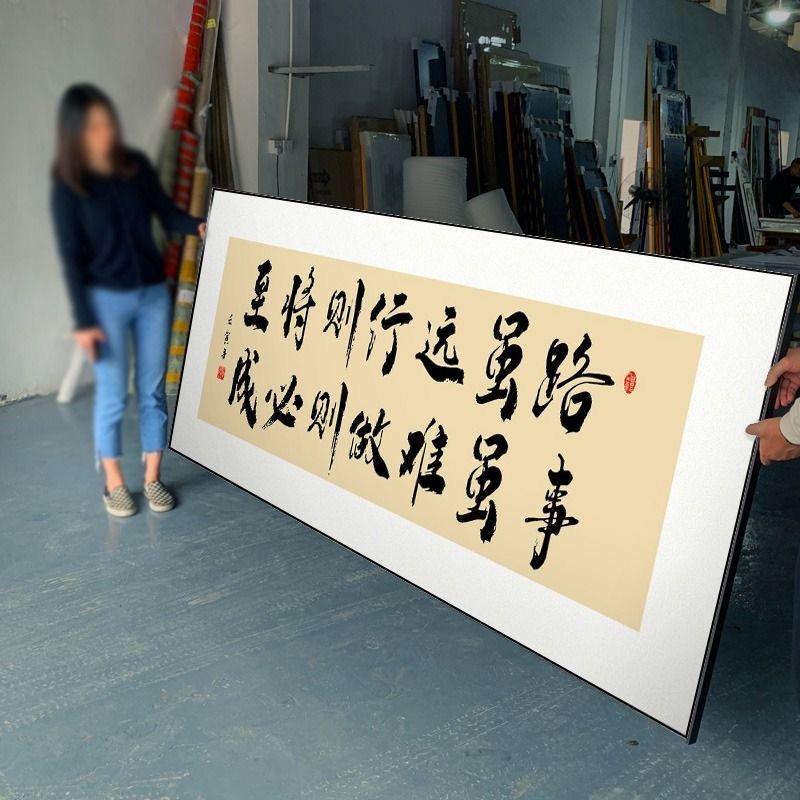 路虽远行则将至
事虽难做则必成
壬寅